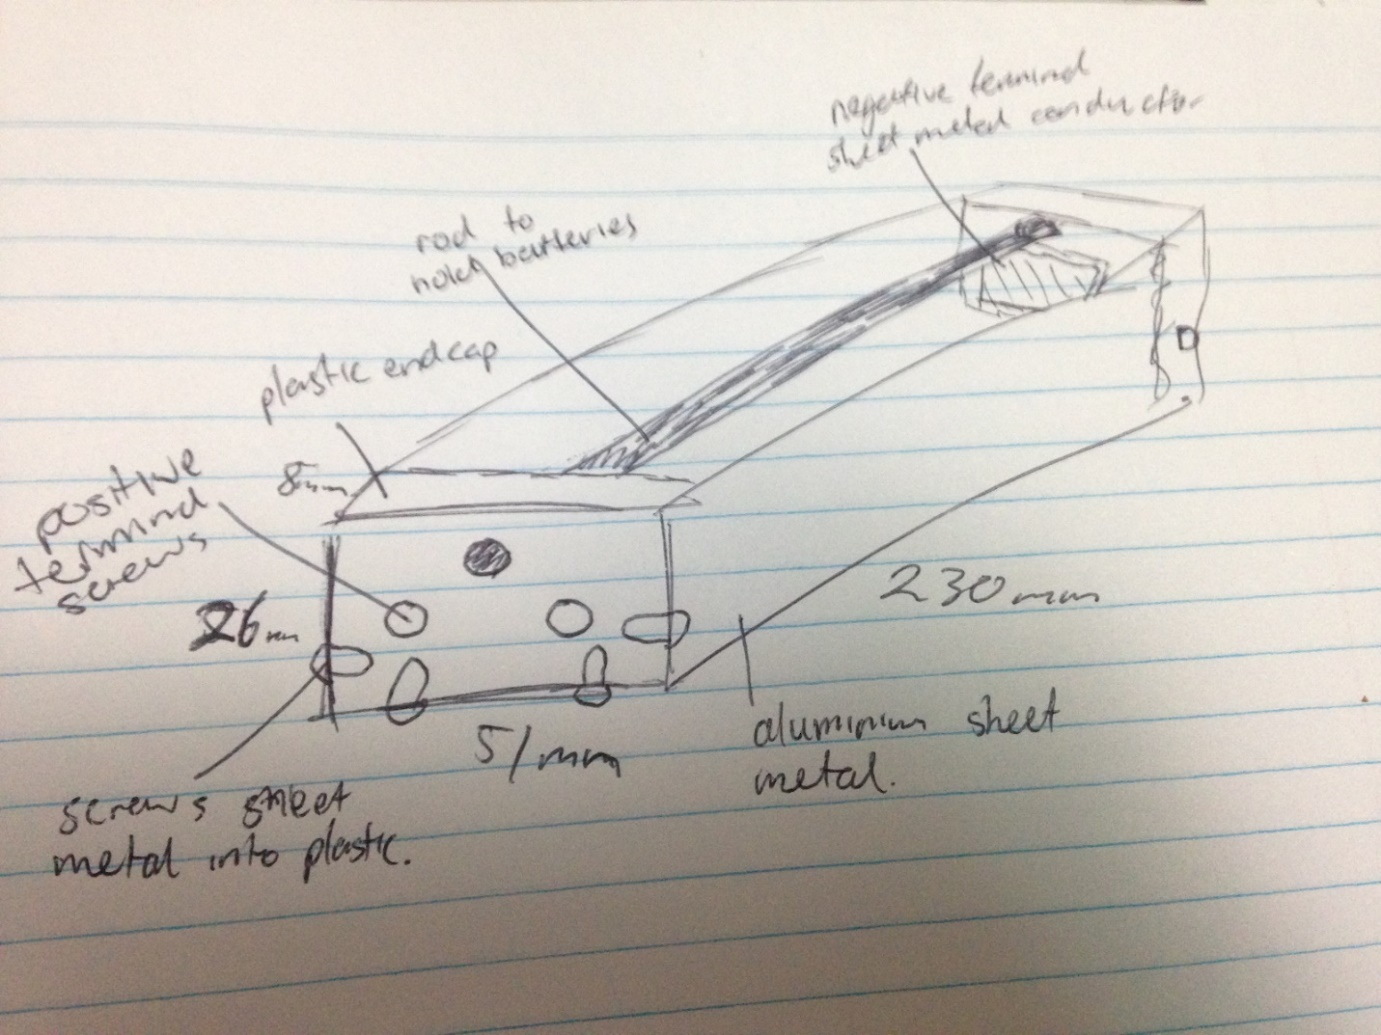 negative terminal
sheet metal conductor
rod to
hold batteries
plastic endcap
8mm
positive
terminal
screws
26mm
230mm
51mm
aluminium sheet
metal.
screws sheet
metal into plastic.